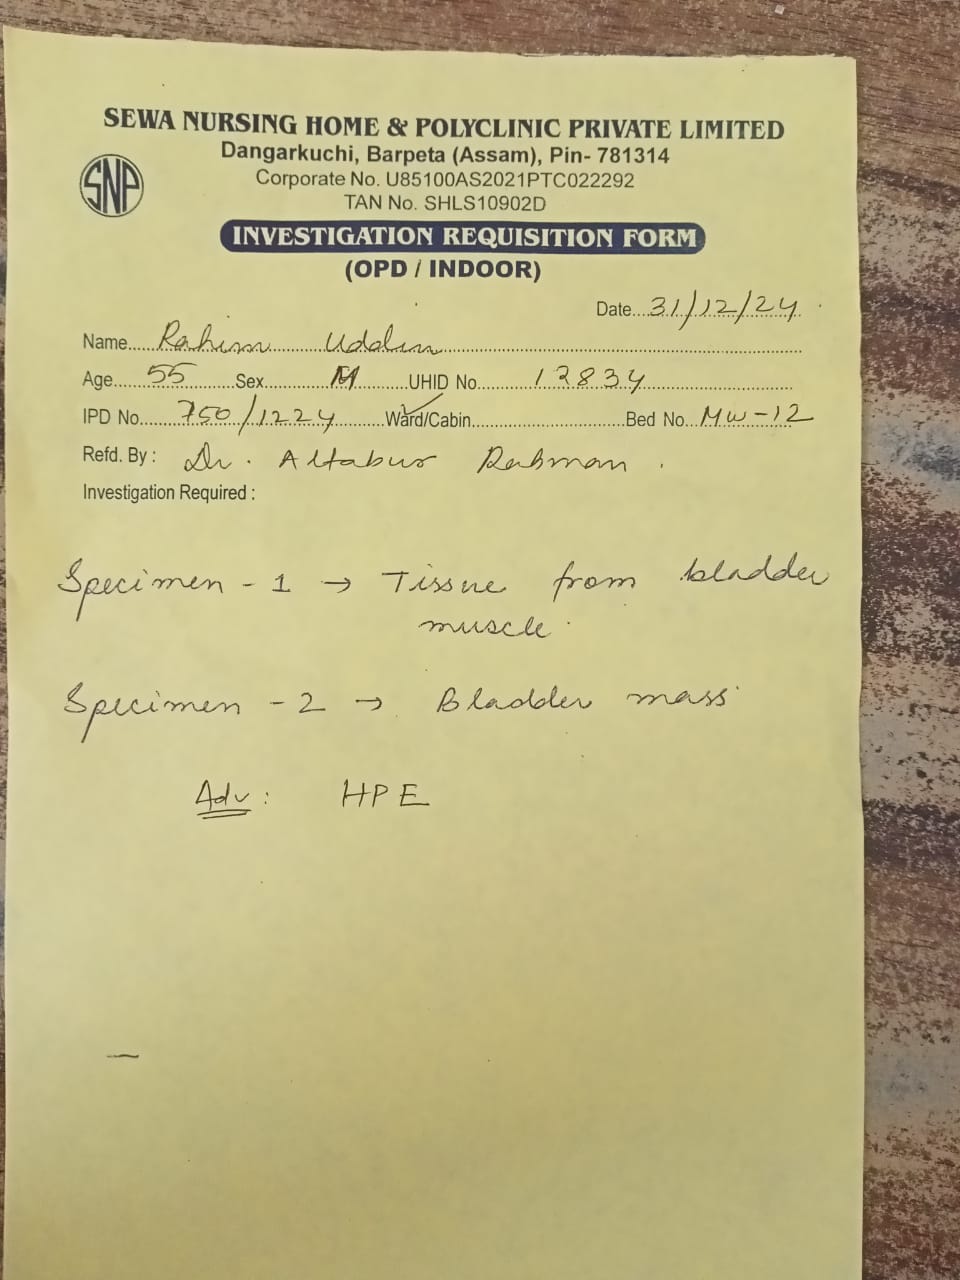 SEWA NURSING HOME & POLYCLINIC PRIVATE LIMITED
Dangarkuchi, Barpeta (Assam), Pin- 781314
SNP
Corporate No. U85100AS2021PTC022292
TAN No. SHLS10902D
INVESTIGATION REQUISITION FORM
(OPD / INDOOR)
Date...31/12/24
Name.....Rahim Uddin
Age.....55 Sex.....M UHID No.....12834
IPD No.....750/1224 Ward/Cabin..... Bed No...MW-12
Refd. By : Dr. Altabur Rahman.
Investigation Required :
Specimen - 1 → Tissue from bladder
muscle.
Specimen - 2 → Bladder mass
Adv : HPE